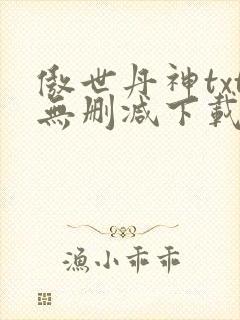 傲世丹神txt
無删減下載
漁小乖乖